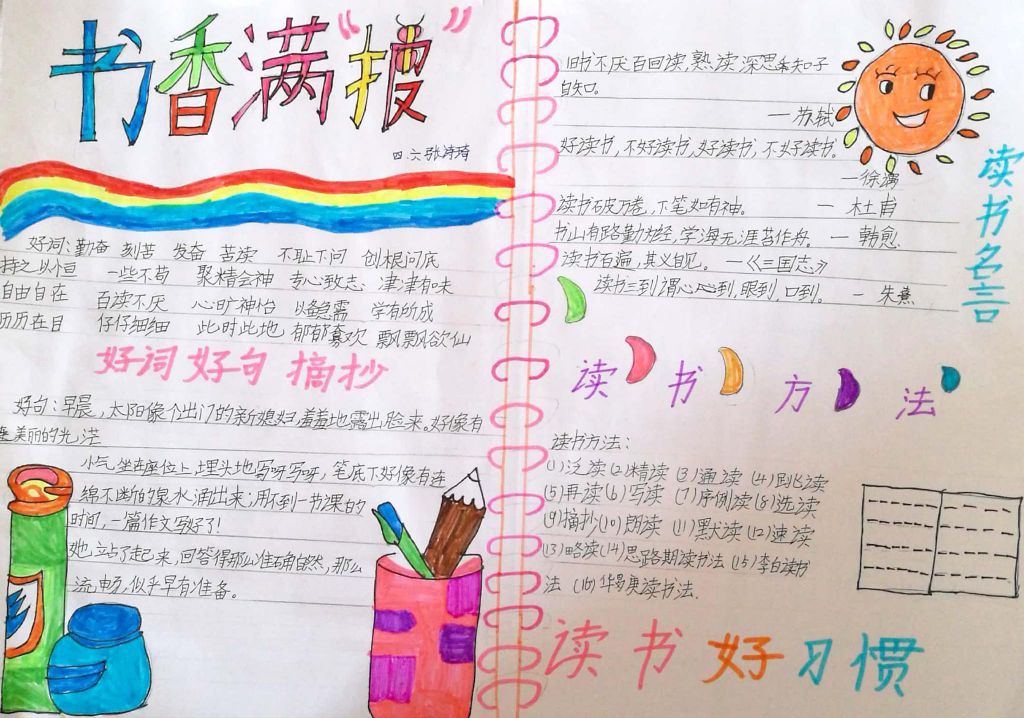 书香满“搜”
四.六张诗琦
好词:勤奋 刻苦 发奋 苦读 不耻下问 创根问底
持之以恒 一些不苟 聚精会神 专心致志 津津有味
自由自在 百读不厌 心旷神怡 以备急需 学有所成
历历在目 仔仔细细 此时此地 郁郁寡欢 飘飘欲仙
好词好句摘抄
好句:早晨,太阳像个出门的新媳妇,羞羞地露出脸来。好像有
美丽的光芒
小气坐在座位上,埋头地写呀写呀,笔底下好像有连
绵不断的泉水涌出来;用不到一节课的
时间,一篇作文写好了!
她立占了起来,回答得那么准确自然,那么
流畅,似乎早有准备。
旧书不厌百回读,熟读深思子
自知。
—苏轼
好读书,不好读书,好读书,不好读书。
—徐渭
读书破万卷,下笔如有神。 —杜甫
书山有路勤为径,学海无涯苦作舟。—韩愈.
读书百遍,其义自见。—《三国志》
读书三到谓心到,眼到,口到。 —朱熹
读书名言
读书方法
读书方法:
(1)泛读(2)精读(3)通读(4)跳读
(5)再读(6)写读(7)序例读(8)选读
(9)摘抄(10)朗读(11)默读(12)速读
(13)略读(14)思路期读书法(15)李白读书
法(16)华易庚读书法.
读书好习惯